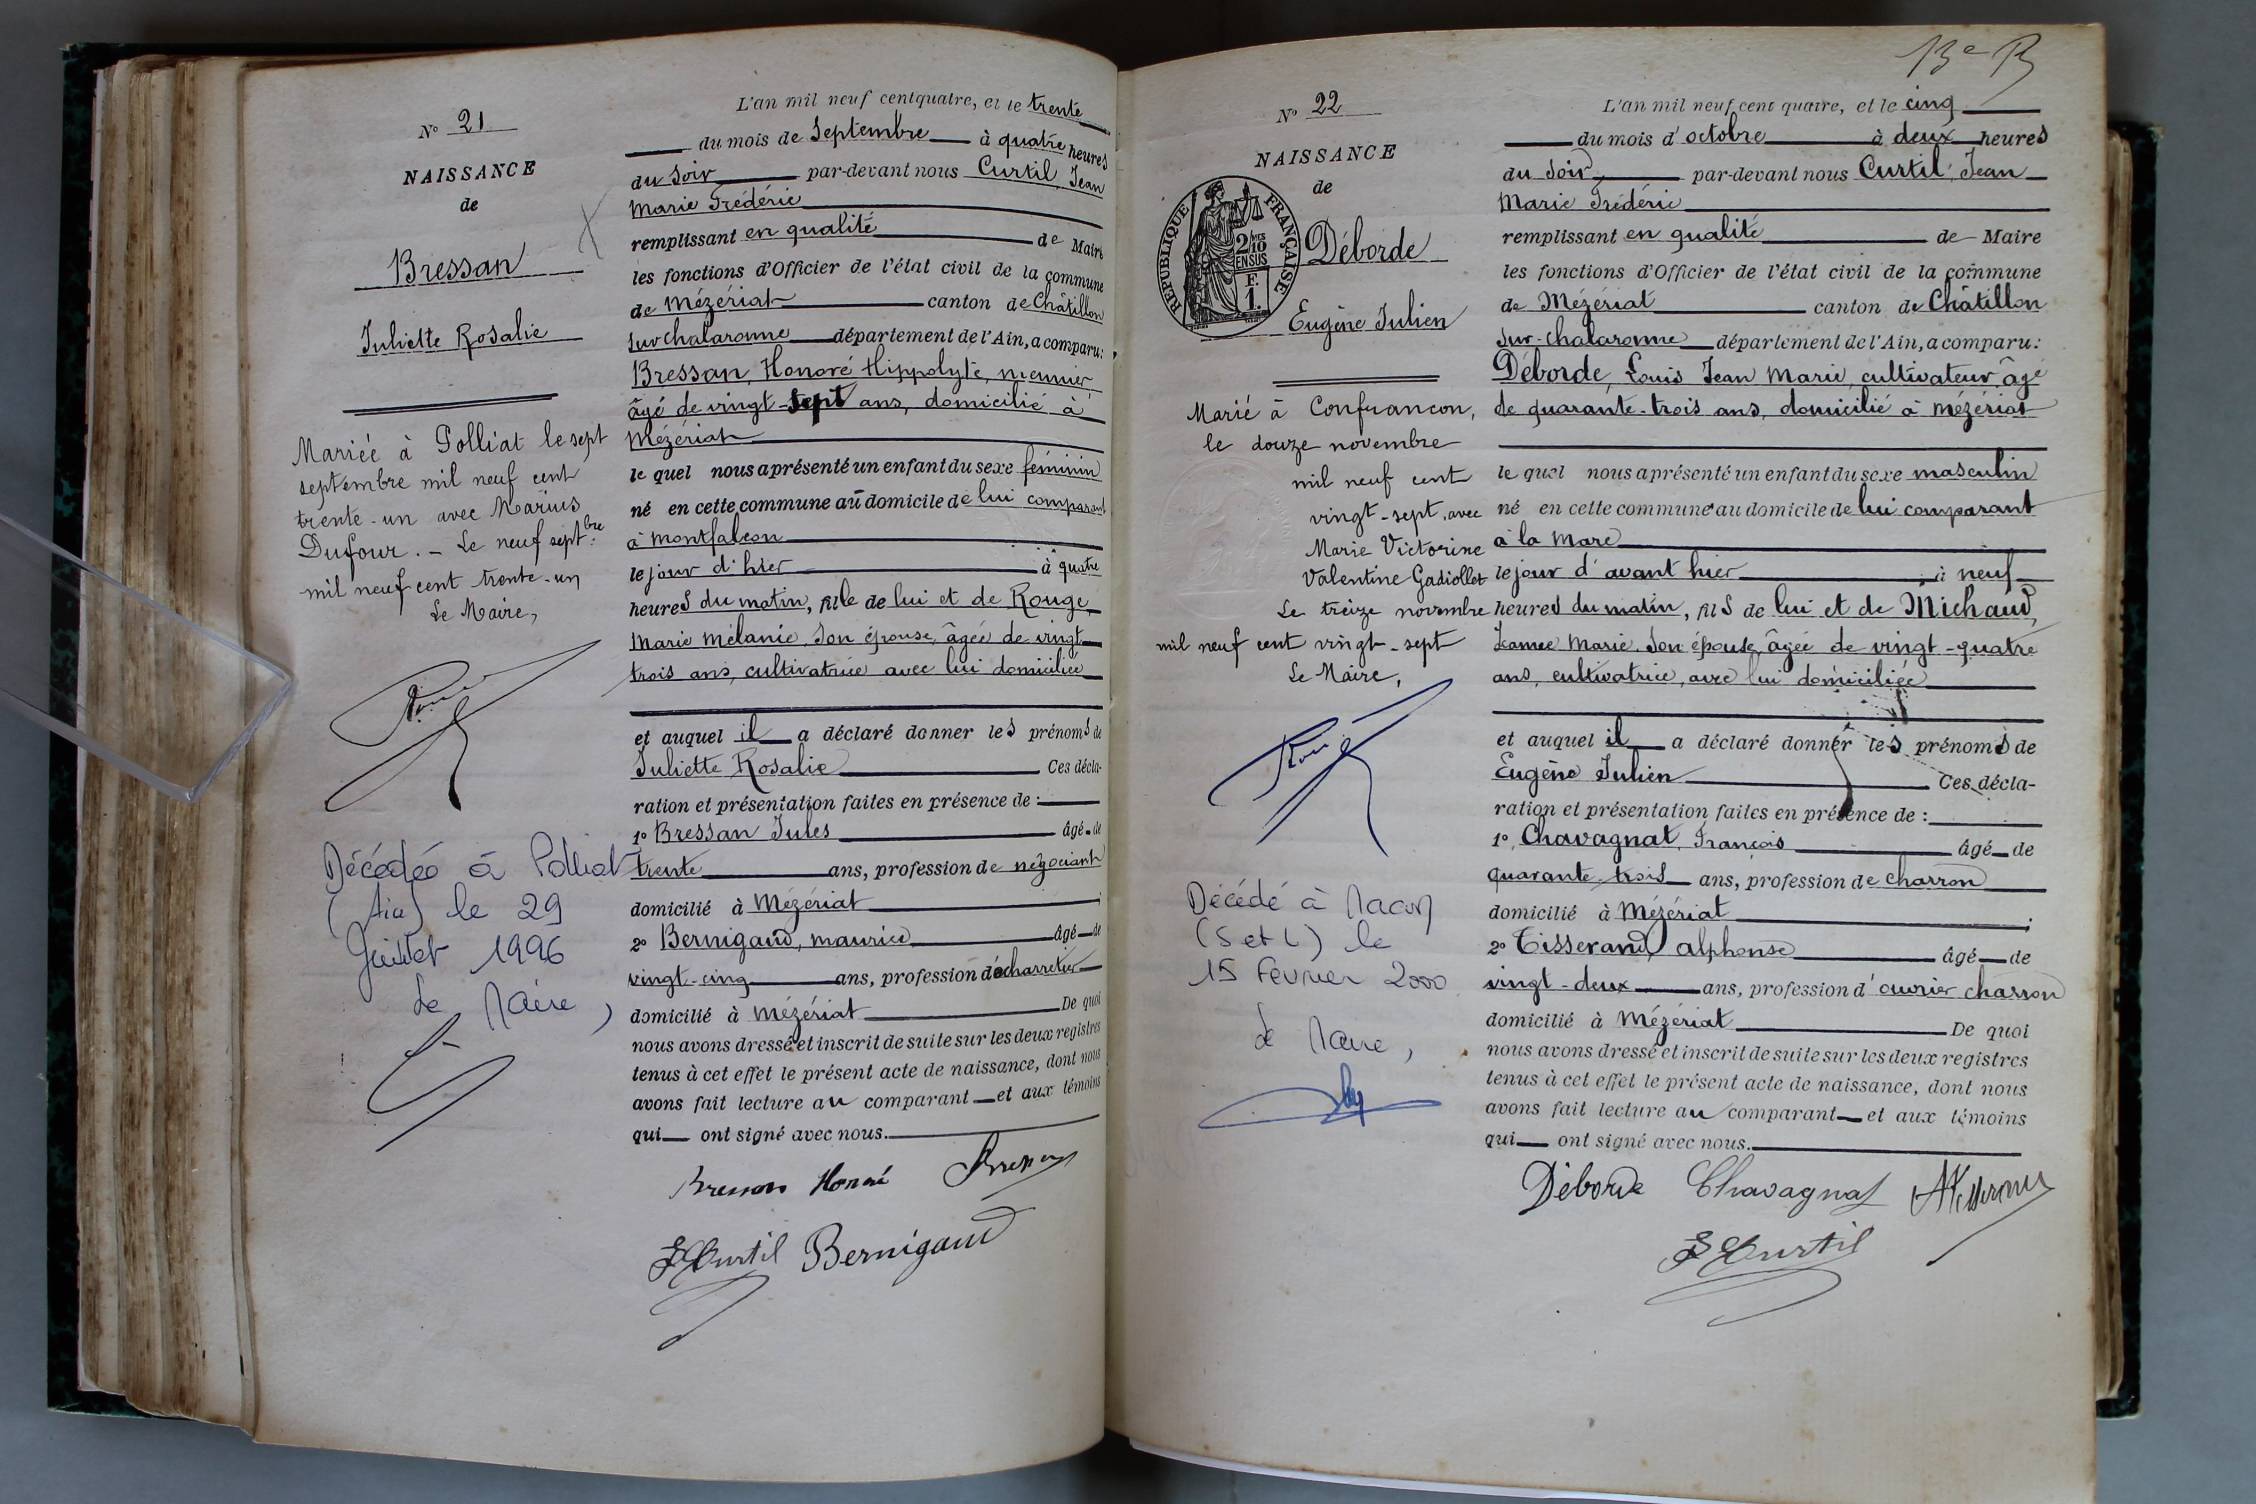 Nº 21
NAISSANCE
de
Bressan
Juliette Rosalie
Mariéé à Polliat le sept
septembre mil neuf cent
trente-un avec Marius
Dufour. - Le neuf sept.bre
mil neuf cent trente-un
Le Maire,
Décédée à Polliat
(Ain) le 29
Juillet 1996
Le Maire,
L'an mil neuf cent quatre, et le trente
du mois de Septembre à quatre heures
du soir par-devant nous Curtil, Jean
Marie Frédéric
remplissant en qualité de Maire
les fonctions d'Officier de l'état civil de la commune
de Mézériat canton de Châtillon
sur chalaronne département de l'Ain, a comparu:
Bressan, Honoré Hippolyte, meunier
âgé de vingt-sept ans, domicilié à
Mézériat
le quel nous a présenté un enfant du sexe féminin
né en cette commune au domicile de lui comparant
à Montfalcon
le jour d'hier à quatre
heures du matin, fille de lui et de Rouge
Marie Mélanie, son épouse, âgée de vingt
trois ans, cultivatrice avec lui domiciliée
et auquel il a déclaré donner les prénoms de
Juliette Rosalie Ces décla-
ration et présentation faites en présence de :
1º Bressan Jules âgé de
trente ans, profession de négociant
domicilié à Mézériat ;
2º Bernigaud, maurice âgé de
vingt-cinq ans, profession de charretier
domicilié à Mézériat De quoi
nous avons dressé et inscrit de suite sur les deux registres
tenus à cet effet le présent acte de naissance, dont nous
avons fait lecture au comparant et aux témoins
qui ont signé avec nous.
Bressan Honoré Bressan
F Curtil Bernigaud
13e B
Nº 22
NAISSANCE
de
RÉPUBLIQUE FRANÇAISE
2/10 EN SUS
F. 1.
Déborde
Eugène Julien
Marié à Confrançon,
le douze novembre
mil neuf cent
vingt-sept, avec
Marie Victorine
Valentine Gadiollet
Le treize novembre
mil neuf cent vingt-sept
Le Maire,
Décédé à Macon
(S et L) le
15 Février 2000
Le Maire,
L'an mil neuf cent quatre, et le cinq
du mois d'octobre à deux heures
du Soir, par-devant nous Curtil, Jean
Marie Frédéric
remplissant en qualité de Maire
les fonctions d'Officier de l'état civil de la commune
de Mézériat canton de Châtillon
sur-chalaronne département de l'Ain, a comparu:
Déborde, Louis Jean Marie, cultivateur, âgé
de quarante-trois ans, domicilié à mézériat
le quel nous a présenté un enfant du sexe masculin
né en cette commune au domicile de lui comparant
à la Mare
le jour d'avant hier, à neuf
heures du matin, fils de lui et de Michaud,
Jeanne Marie, son épouse, âgée de vingt-quatre
ans, cultivatrice, avec lui domiciliée
et auquel il a déclaré donner les prénoms de
Eugène Julien Ces décla-
ration et présentation faites en présence de :
1º Chavagnat, François âgé de
quarante-trois ans, profession de charron
domicilié à Mézériat ;
2º Tisserand, alphonse âgé de
vingt-deux ans, profession d'ouvrier charron
domicilié à Mézériat De quoi
nous avons dressé et inscrit de suite sur les deux registres
tenus à cet effet le présent acte de naissance, dont nous
avons fait lecture au comparant et aux témoins
qui ont signé avec nous.
Déborde Chavagnat A Tisserand
F Curtil